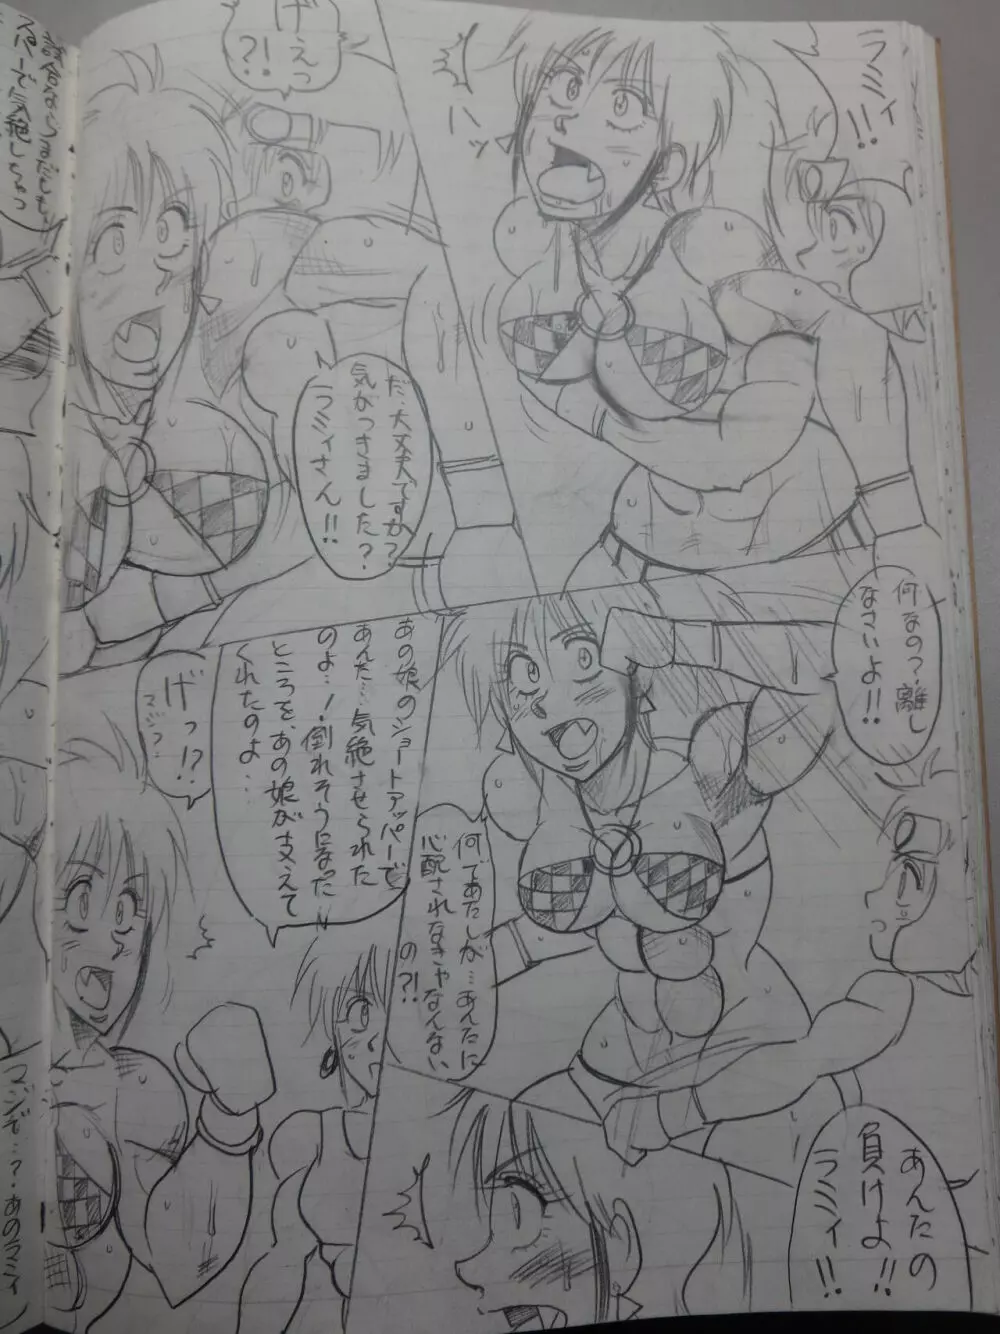 ラミィ!!
ハッ
げぇっ
?!
だ、大丈夫ですか?
気がつきました?
ラミィさん!!
何なの?離し
なさいよ!!
何であたしが…あんたに
心配されなきゃなんない
の?!
あの娘のショートアッパーで
あんた…気絶させられた
のよ…!倒れそうになった
ところを、あの娘が支えて
くれたのよ…
げっ!?
マジ?
あんたの
負けよ!!
ラミィ!!
マジで…?あのラミィ